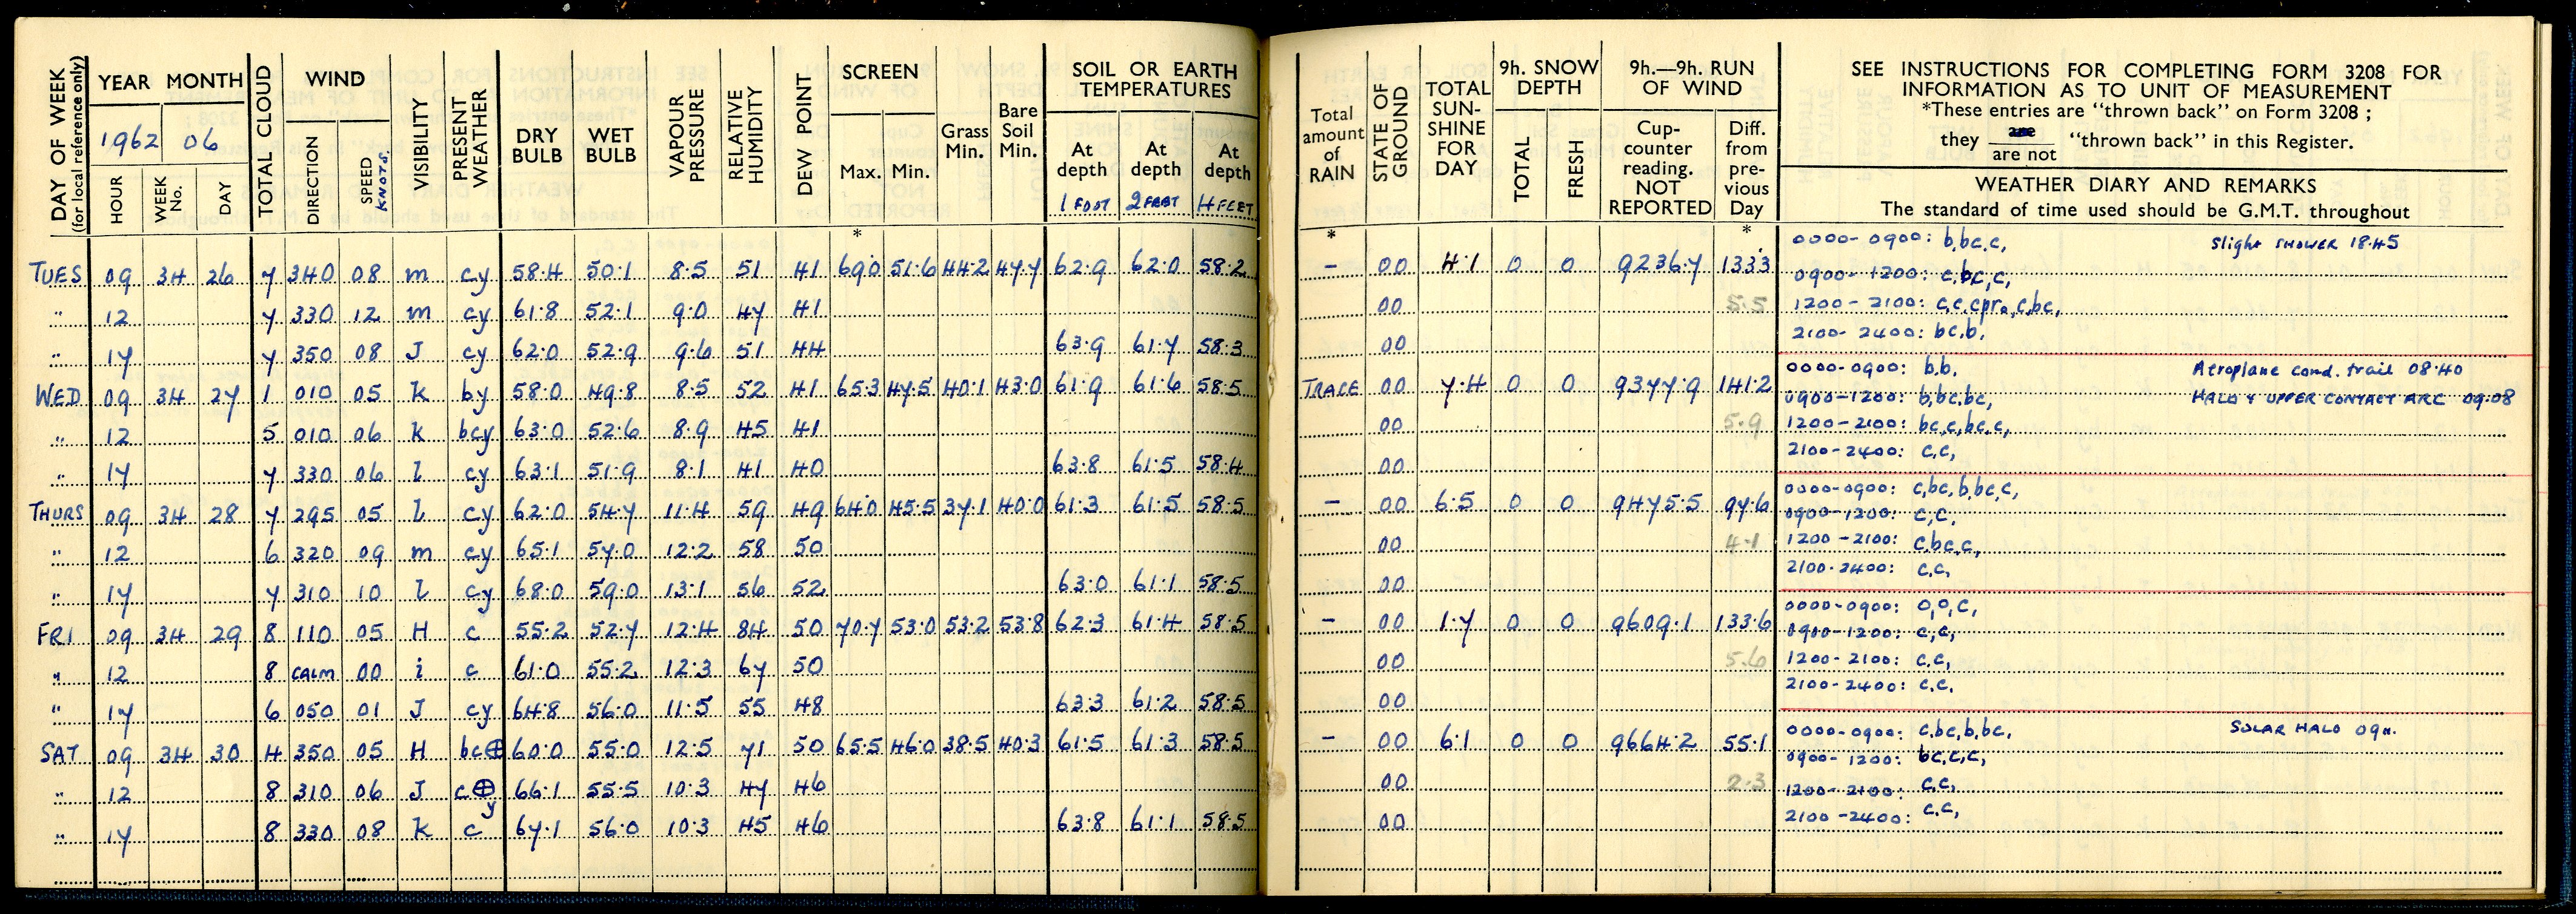 DAY OF WEEK (for local reference only) YEAR MONTH TOTAL CLOUD WIND VISIBILITY PRESENT WEATHER DRY BULB WET BULB VAPOUR PRESSURE RELATIVE HUMIDITY DEW POINT SCREEN Grass Min. Bare Soil Min. SOIL OR EARTH TEMPERATURES
1962 06
HOUR WEEK No. DAY DIRECTION SPEED KNOTS Max. Min. At depth 1 FOOT At depth 2 FEET At depth 4 FEET
Total amount of RAIN STATE OF GROUND TOTAL SUN-SHINE FOR DAY 9h. SNOW DEPTH TOTAL FRESH 9h.—9h. RUN OF WIND Cup-counter reading. NOT REPORTED Diff. from pre-vious Day
SEE INSTRUCTIONS FOR COMPLETING FORM 3208 FOR
INFORMATION AS TO UNIT OF MEASUREMENT
*These entries are "thrown back" on Form 3208 ;
they are / are not "thrown back" in this Register.
WEATHER DIARY AND REMARKS
The standard of time used should be G.M.T. throughout
* * *
TUES 09 34 26 7 340 08 m cy 58.4 50.1 8.5 51 41 69.0 51.6 44.2 47.7 62.9 62.0 58.2 – 00 4.1 0 0 9236.7 133.3
" 12 7 330 12 m cy 61.8 52.1 9.0 47 41 00 5.5
" 17 7 350 08 J cy 62.0 52.9 9.6 51 44 63.9 61.7 58.3 00
0000-0900: b,bc,c, Slight SHOWER 18.45
0900-1200: c,bc,c,
1200-2100: c,c,cpr₀,c,bc,
2100-2400: bc,b,
WED 09 34 27 1 010 05 k by 58.0 49.8 8.5 52 41 65.3 47.5 40.1 43.0 61.9 61.6 58.5 TRACE 00 7.4 0 0 9377.9 141.2
" 12 5 010 06 k bcy 63.0 52.6 8.9 45 41 00 5.9
" 17 7 330 06 l cy 63.1 51.9 8.1 41 40 63.8 61.5 58.4 00
0000-0900: b,b, Aeroplane cond. trail 08.40
0900-1200: b,bc,bc, HALO & UPPER CONTACT ARC 09.08
1200-2100: bc,c,bc,c,
2100-2400: c,c,
THURS 09 34 28 7 295 05 l cy 62.0 54.7 11.4 59 49 64.0 45.5 37.1 40.0 61.3 61.5 58.5 – 00 6.5 0 0 9475.5 97.6
" 12 6 320 09 m cy 65.1 57.0 12.2 58 50 00 4.1
" 17 7 310 10 l cy 68.0 59.0 13.1 56 52 63.0 61.1 58.5 00
0000-0900: c,bc,b,bc,c,
0900-1200: c,c,
1200-2100: c,bc,c,
2100-2400: c,c,
FRI 09 34 29 8 110 05 H c 55.2 52.7 12.4 84 50 70.7 53.0 53.2 53.8 62.3 61.4 58.5 – 00 1.7 0 0 9609.1 133.6
" 12 8 CALM 00 i c 61.0 55.2 12.3 67 50 00 5.6
" 17 6 050 01 J cy 64.8 56.0 11.5 55 48 63.3 61.2 58.5 00
0000-0900: o,o,c,
0900-1200: c,c,
1200-2100: c,c,
2100-2400: c,c,
SAT 09 34 30 4 350 05 H bc⊕ 60.0 55.0 12.5 71 50 65.5 46.0 38.5 40.3 61.5 61.3 58.5 – 00 6.1 0 0 9664.2 55.1
" 12 8 310 06 J c⊕y 66.1 55.5 10.3 47 46 00 2.3
" 17 8 330 08 k c 67.1 56.0 10.3 45 46 63.8 61.1 58.5 00
0000-0900: c,bc,b,bc, SOLAR HALO 09H.
0900-1200: bc,c,c,
1200-2100: c,c,
2100-2400: c,c,